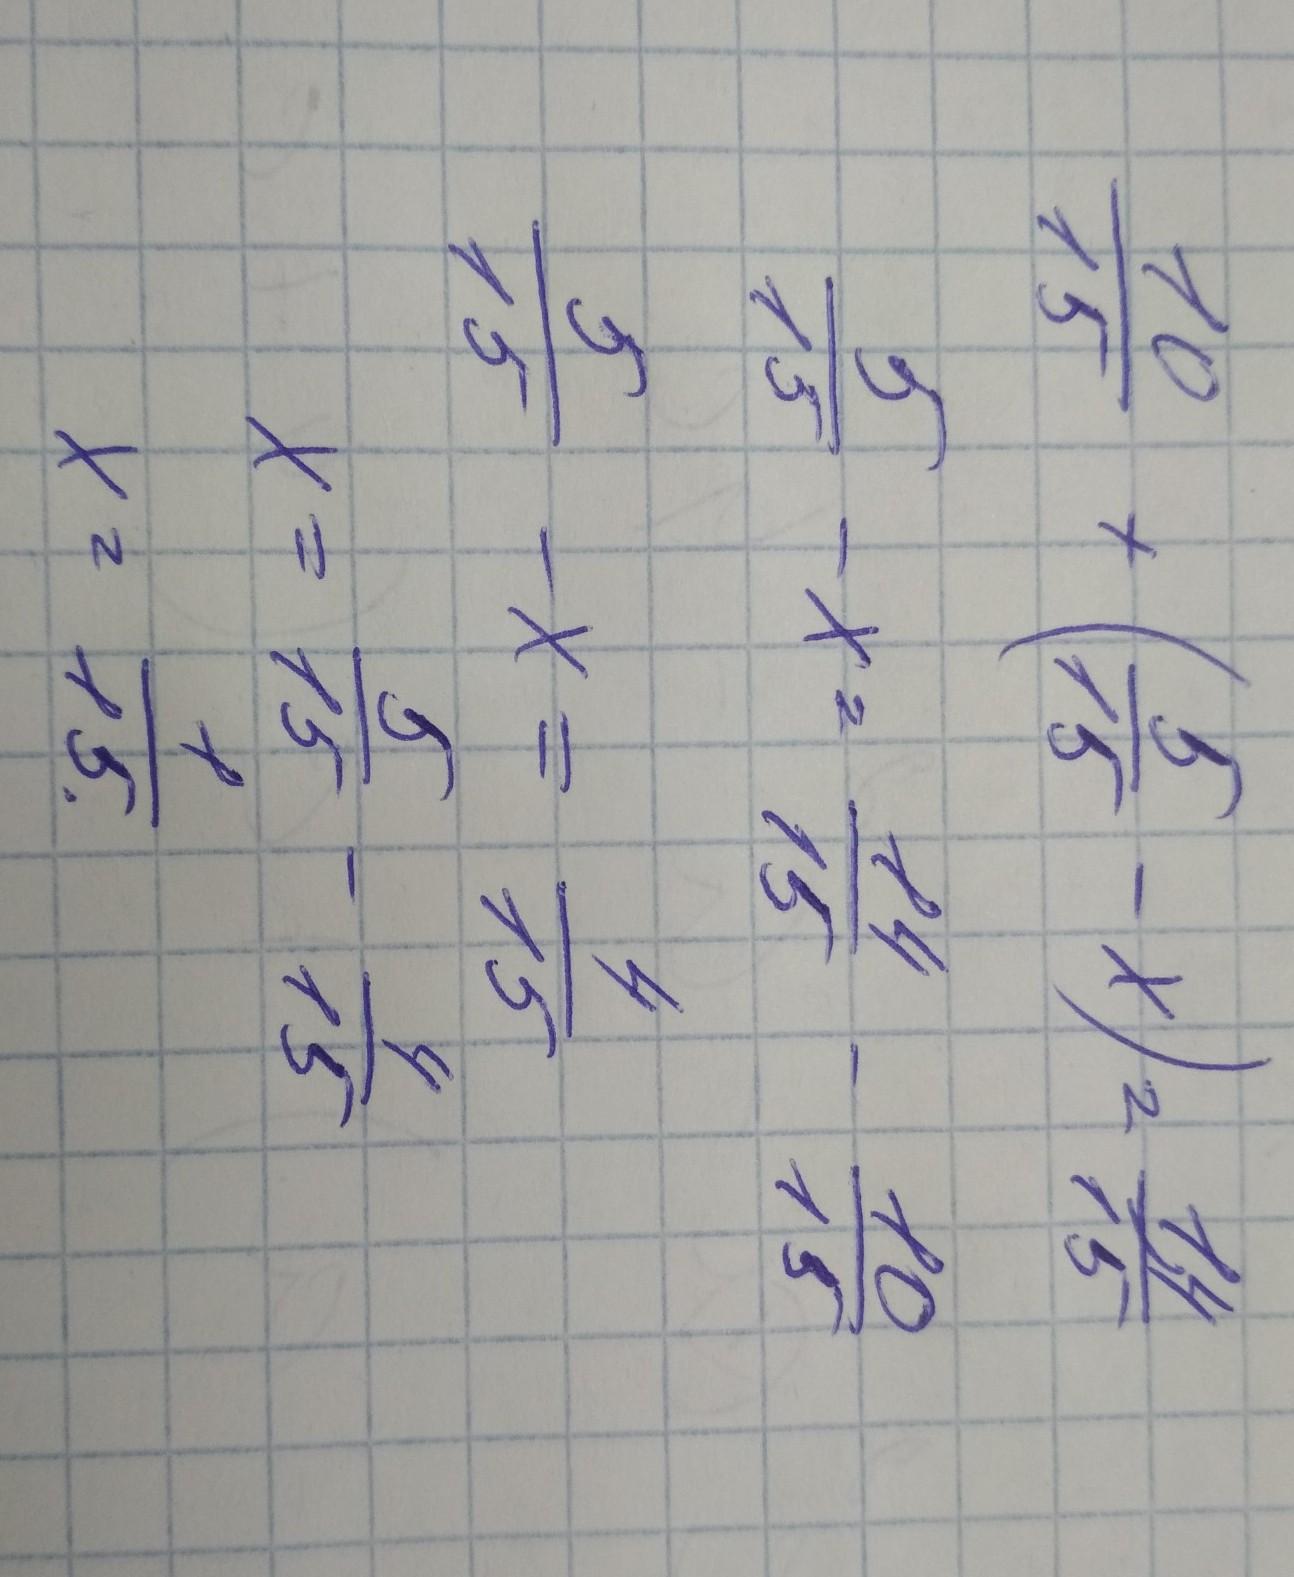 10/15 + (5/15 - x) = 14/15
5/15 - x = 14/15 - 10/15
5/15 - x = 4/15
x = 5/15 - 4/15
x = 1/15.